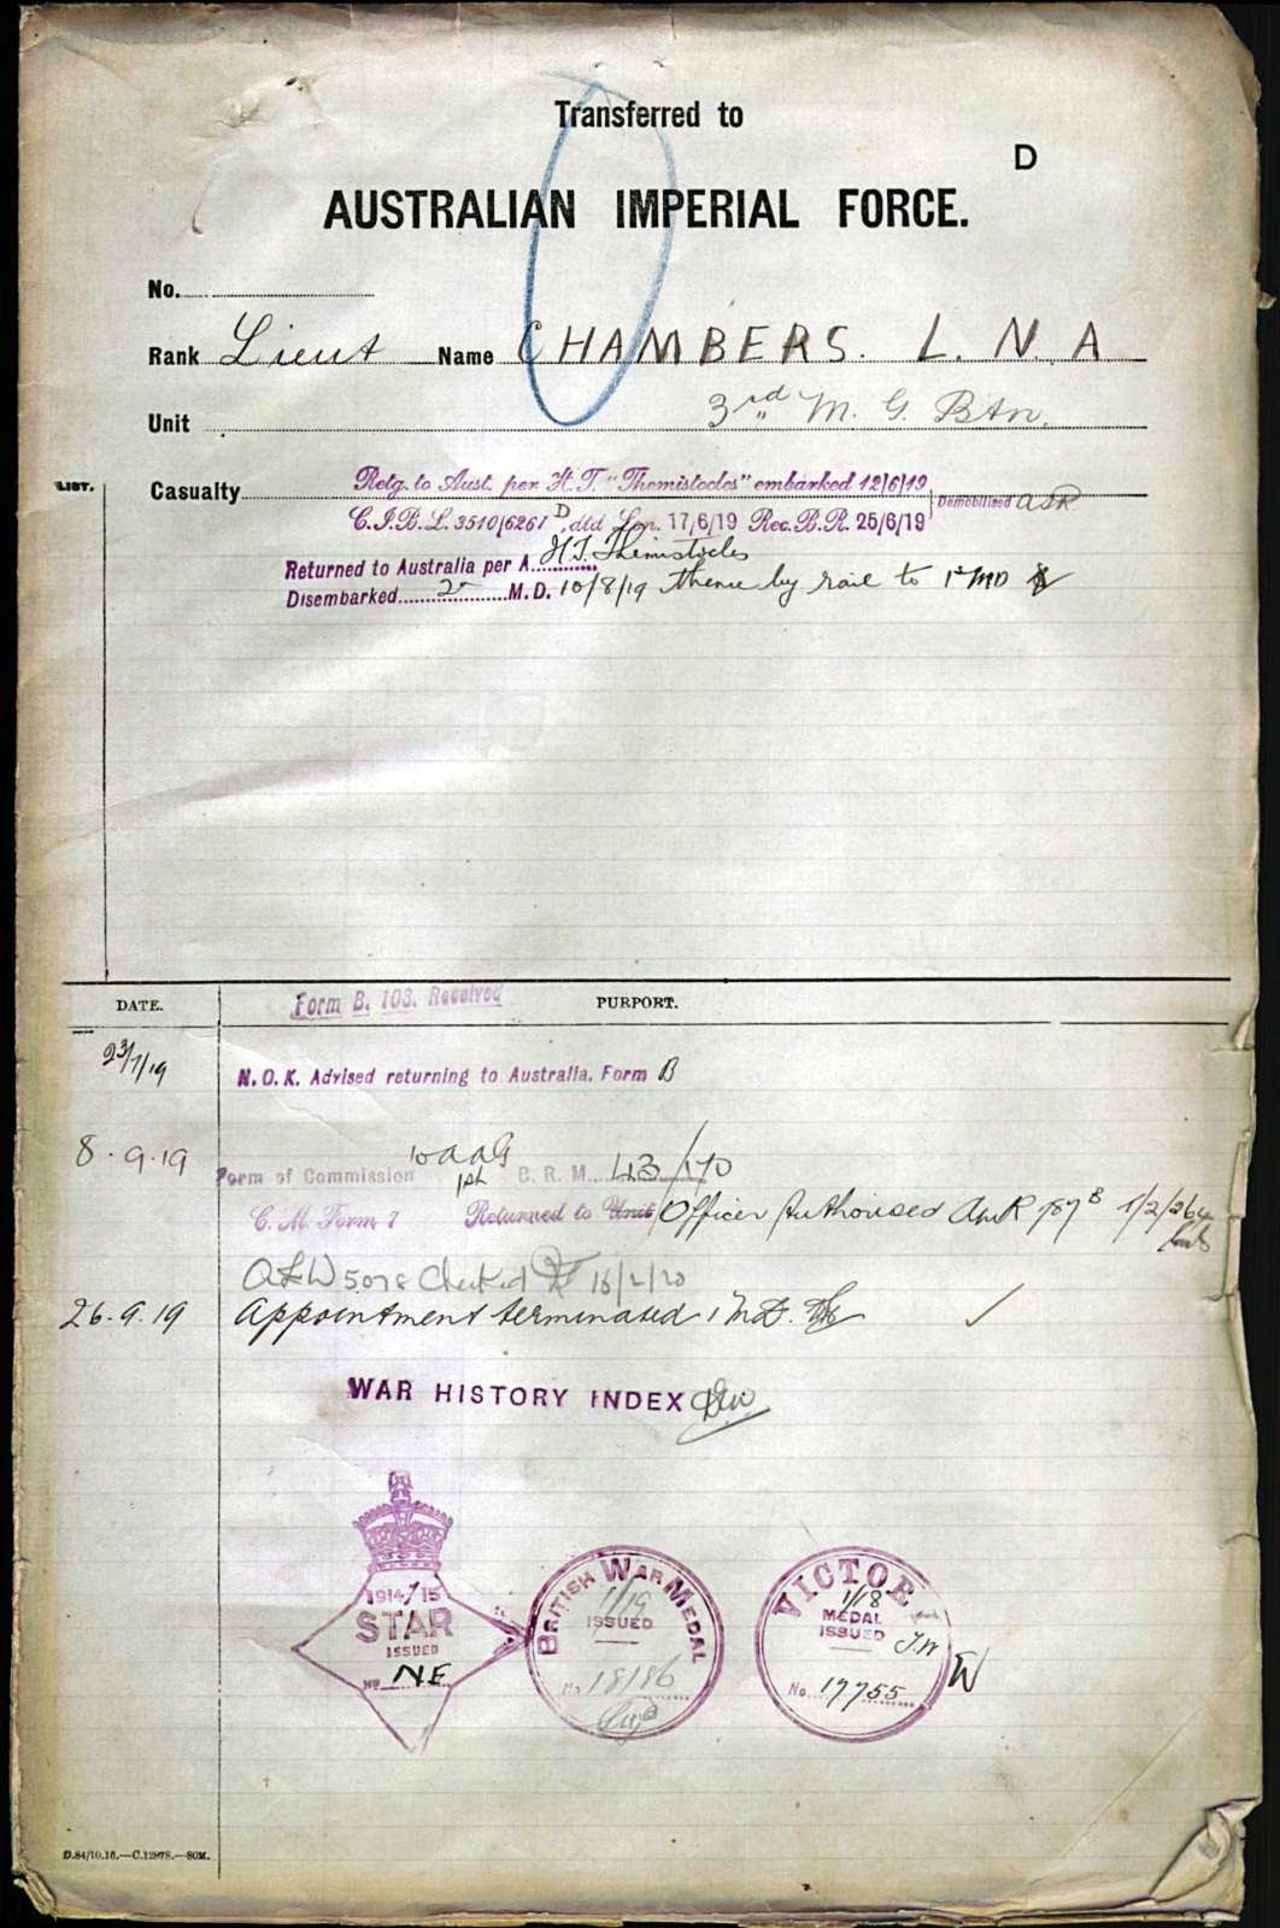 Transferred to
D
AUSTRALIAN IMPERIAL FORCE.
No.
Rank Lieut Name CHAMBERS. L. N. A
Unit 3rd M. G. Btn.
LIST.
Casualty Retg. to Aust. per H.T. "Themistocles" embarked 12/6/19
C.I.B.L. 3510/6261 D, dtd Lon. 17/6/19 Rec. B.R. 25/6/19 Demobilised
Returned to Australia per A. H.T. Themistocles
Disembarked M.D. 10/8/19 thence by rail to 1st MD
DATE. Form B. 103. Received PURPORT.
23/7/19 N.O.K. Advised returning to Australia. Form B
8.9.19 Form of Commission 1st B. R. M. 43/170
C. M. Form 7 Returned to Unit/Officer Authorised
Checked 16/2/20
26.9.19 Appointment terminated 1 M.D.
WAR HISTORY INDEX
1914/15
STAR
ISSUED
No NE
BRITISH WAR MEDAL
1/19
ISSUED
No 18186
VICTORY
1/18
MEDAL
ISSUED
J.W
W
No. 17755
D.84/10.16.—C.12978.—80M.